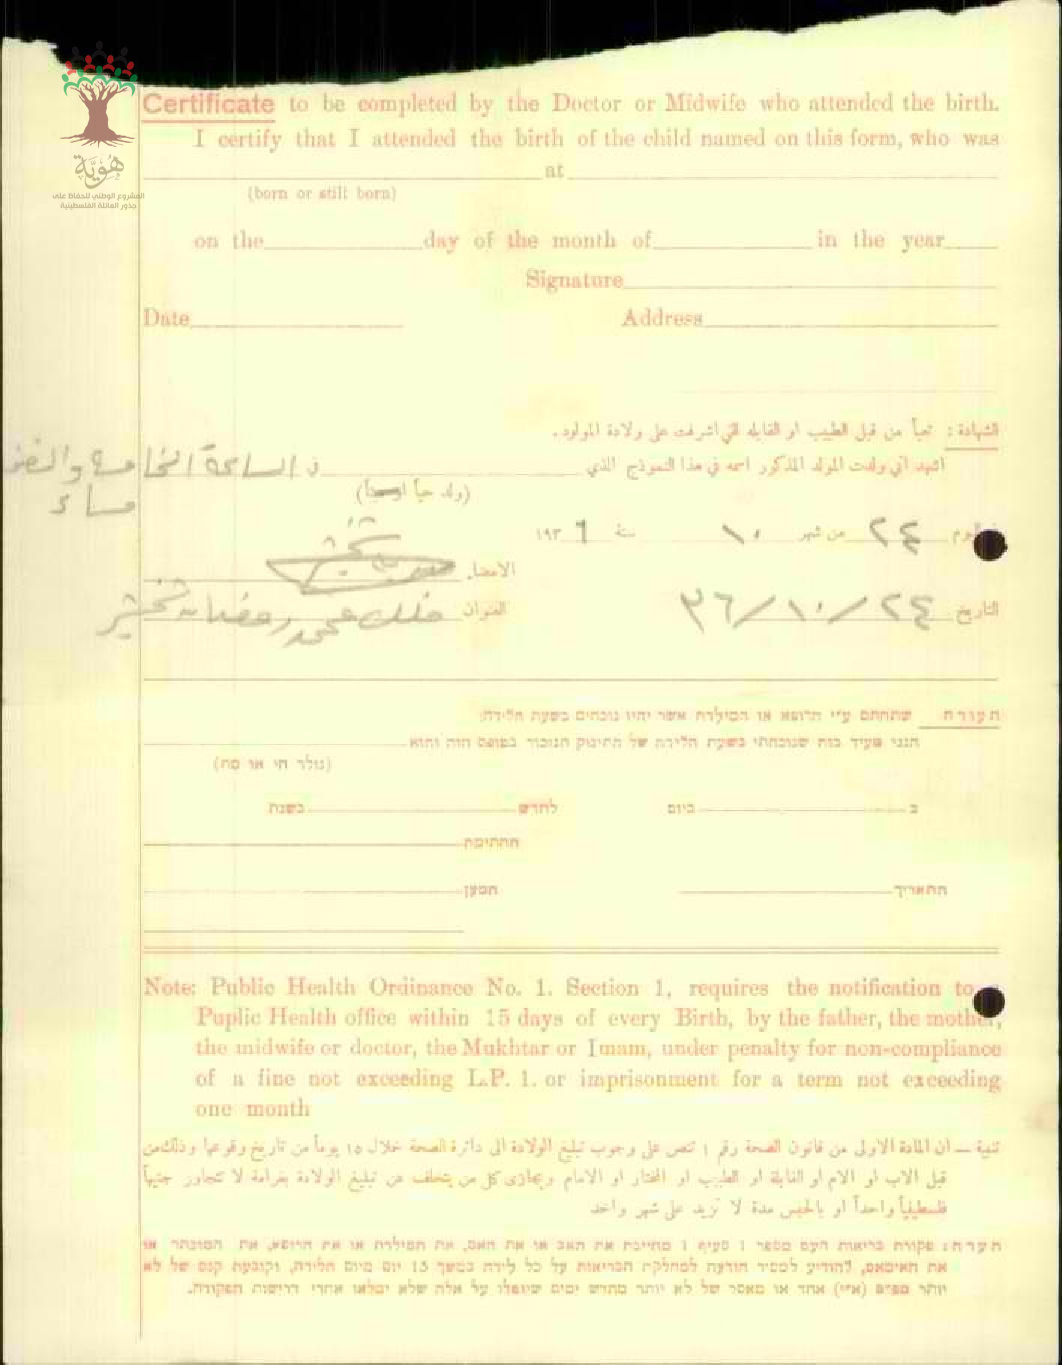 هُوِيَّة
المشروع الوطني للحفاظ على
جذور العائلة الفلسطينية
Certificate to be completed by the Doctor or Midwife who attended the birth.
I certify that I attended the birth of the child named on this form, who was
at
(born or still born)
on the day of the month of in the year
Signature
Date Address
الشهادة : تعبأ من قبل الطبيب او القابله التي اشرفت على ولادة المولود.
اشهد اني ولدت المولد المذكور اسمه في هذا النموذج الذي في الساعة الخامسة والنصف
مساء
(ولد حياً او ميتاً)
٢٤ من شهر ١٠ سنة ١٩٣٦
الامضاء
التاريخ ٢٤/١٠/٣٦ العنوان محمد رمضان
תעודה שתחתם ע״י הרופא או המילדת אשר יהיו נוכחים בשעת הלידה:
הנני מעיד בזה שנוכחתי בשעת הלידה של התינוק הנזכר בטופס הזה והוא
(נולד חי או מת)
ב ביום לחדש בשנת
החתימה
התאריך המען
Note: Public Health Ordinance No. 1. Section 1, requires the notification to
Puplic Health office within 15 days of every Birth, by the father, the mother,
the midwife or doctor, the Mukhtar or Imam, under penalty for non-compliance
of a fine not exceeding L.P. 1. or imprisonment for a term not exceeding
one month
تنبيه — ان المادة الاولى من قانون الصحة رقم ١ تنص على وجوب تبليغ الولادة الى دائرة الصحة خلال ١٥ يوماً من تاريخ وقوعها وذلك من
قبل الاب او الام او القابلة او الطبيب او المختار او الامام ويجازى كل من يتخلف عن تبليغ الولادة بغرامة لا تتجاوز جنيهاً
فلسطينياً واحداً او بالحبس مدة لا تزيد على شهر واحد
הערה: פקודת בריאות העם מספר 1 סעיף 1 מחייבת את האב או את האם, את המילדת או את הרופא, את המוכתר או
את האימאם, להודיע למשרד הודעה למחלקת הבריאות על כל לידה במשך 15 יום מיום הלידה, וקובעת קנס של לא
יותר מפ״ם (א״י) אחד או מאסר של לא יותר מחדש ימים שיוטלו על אלה שלא ימלאו אחרי דרישות הפקודה.